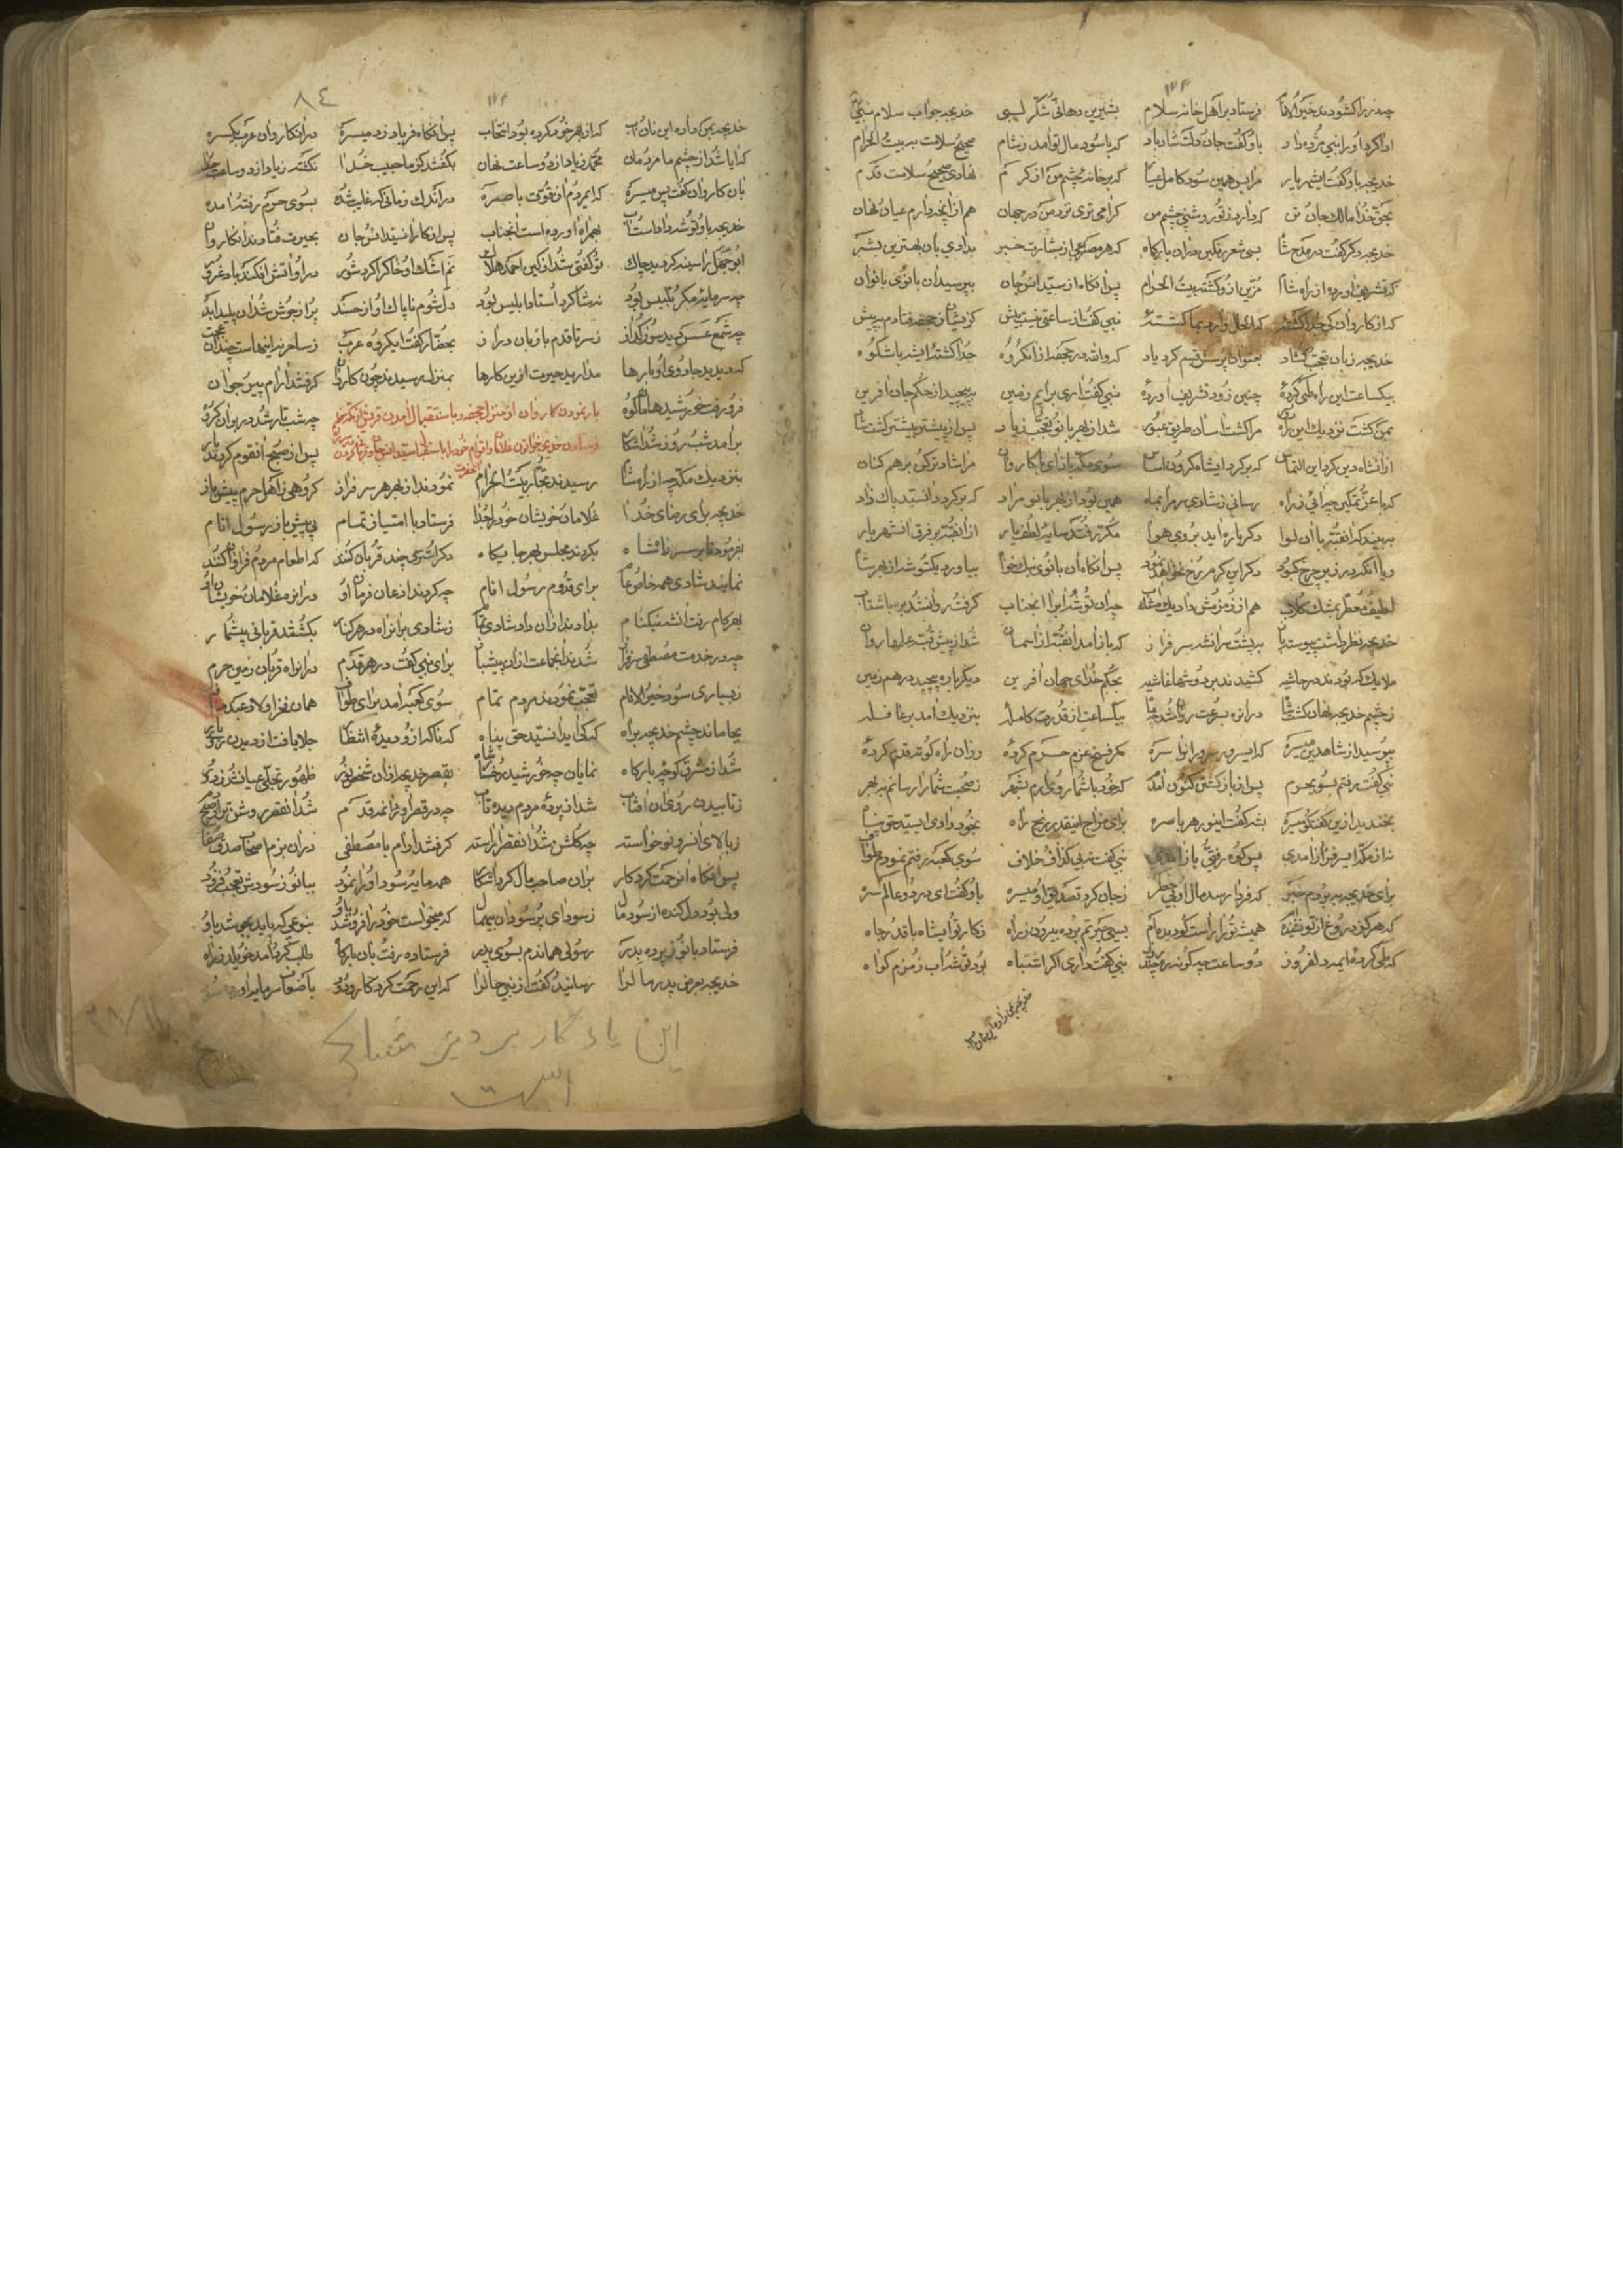 چه در را کشودند خیر الانام فرستاد بر اهل خانه سلام بشیرین دهانی شکر لبی خدیجه جواب سلام نبی
ادا کرد او را نبی مژده داد باو گفت جان و دلت شاد باد که با سود مال تو آمد ز شام صحیح سلامت به بیت الحرام
خدیجه باو گفت ای شهریار مرا بس همین سود کامل عیار که بر خانه چشم من از کرم نهادی صحیح سلامت قدم
بحق خدا مالک جان تن که دارد ز تو روشنی چشم من گرامی توی نزد من در جهان هم از آنچه دارم عیان و نهان
خدیجه دگر گفت در مدح شاه بسی شعر رنگین در آن بارگاه که هر مصرعی از بشارت خبر بدادی بآن بهترین بشر
که تشریف آورده از راه شام مزین ازو گشته بیت الحرام پس آنگاه از سید انس و جان بپرسید آن بانوی بانوان
که از کاروان کی جدا گشته که الحال وارد بما گشته نبی گفت از ساعتی نیست بیش کزیشان بحضر فتادم به پیش
خدیجه زبان تعجب گشاد بعنوان پرسش قسم کرد یاد که والله در جحفه از آن گروه جدا گشته ای شه با شکوه
بیکساعت این راه طی کرده چنین زود تشریف آورده نبی گفت آری برایم زمین بپیچید از حکم جان آفرین
بمن گشت نزدیک این راه دور مرا گشت آسان طریق عبور شد از بهر بانو تعجب زیاد پس از پیشتر بیشتر گشت شاد
از آنشاه دین کرد این التماس که برگرد ای شاه گردون اساس سوی مکه باز آی با کاروان
که باعث بتمکین حیرانی ز راه رسانی ز شادی سرم را بماه همین بود از بهر بانو مراد که برگردد آن سید پاک زاد
به بیند که آن قبه با آن لوا دگرباره آید بروی هوا مکرر فتد سایه لطف یار از آن قبه بر فرق آن شهریار
و یا آنکه در زیر چرخ کبود دگر این کرم رخ نخواهد نمود پس آنگاه آن بانوی نیکخواه بیاورد یک توشه از بهر شاه
لطیف و معطر بمشک گلاب هم از زمزمش داد یک مشک آب چه آن توشه را برد آنجناب گرفت روان شد بره با شتاب
خدیجه نظر داشت پیوسته باز بر پشت سر آن شه سرفراز که باز آمد آن قبه از آسمان شد از پیش قبه علمها روان
ملایک که بودند در حاشیه کشیدند بر دوشها غاشیه بحکم خدای جهان آفرین دیگر باره پیچید در هم زمین
ز چشم خدیجه نهان گشت شاه در آن ره بسرعت روان شد چه ماه بیکساعت از قدرت کامله بنزدیک آمد بر قافله
بپرسید از شاه دین میسره که ای سرور سرور آنها سره مگر فسخ عزم حرم کرده و زان راه کوته قدم کرده
نبی گفت رفتم بسوی حرم پس از بازگشتن کنون آمدم که خود با شما رو آرم بشهر ز صحبت شما را رسانم به بهر
بخندید ازین گفتگو میسره بشه گفت ای نور هر باصره برای مزاح اینقدر رنج راه بخود دادی ای سید حق پناه
نه از مکه ای سرفراز آمدی پس کوه رفتی باز آمدی نبی گفت نه بی گذاف خلاف سوی کعبه رفتم نمودم طواف
برای خدیجه ببردم خبر که فردا رسد مال او بی خطر ز جان کرد تصدیق او میسره باو گفت ای در دو عالم سره
که هرگز دروغ از تو نشنیده ام همیشه ترا راست گو دیده ام بسی حیرتم برده بیرون ز راه ز کار تو ای شاه با قدر جاه
که طی کرده ای مه دلفروز دو ساعت چه گونه ره چند روز نبی گفت داری اگر اشتباه بود توشه آب زمزم گواه
خدیجه بمن داده این نان و آب
۸٤
خدیجه بمن داده این نان و آب که از بهر خود کرده بود انتخاب پس آنگاه فریاد زد میسره در آن کاروان عرب یکسره
که آیا شد از چشم ما مردمان محمد زیاد از دو ساعت نهان بگفتند کز ما حبیب خدا نگشته زیاد از دو ساعت جدا
بآن کاروان گفت پس میسره که ای مردم از قوت باصره در اندک زمانی که غایب شده بسوی حرم رفته آمده
خدیجه باو توشه داداست و آب بهمراه آورده است آنجناب پس از کار آن سید انس و جان بحیرت فتادند آن کاروان
ابوجهل را سینه گردید چاک تو گفتی شد از کین احمد هلاک نم اشک او خاک را کرد شور در او آتش افکند باد غرور
چه سرمایه مکر تلبیس بود نه شاگرد استاد ابلیس بود دل شوم ناپاک او از حسد پر از جوش شد آن پلید ابد
ز سر تا قدم با زبان دراز بحضار گفت ای گروه عرب ز ساحر نه اینهاست چندان عجب
که دیدید جادوی او بارها مدارید حیرت ازین کارها بمنزل رسیدند چون کاروان گرفتند آرام پیر و جوان
فرو رفت خورشید چه شب تار شد
برآمد شب روز شد آشکار پس از صبح آن قوم کردند بار
بنزدیک مکه چه از راه شام رسیدند تجار بیت الحرام نمودند از بهر هر سرفراز گروهی ز اهل حرم پیشواز
خدیجه برای رضای خدا غلامان خویشان خود را جدا فرستاد با امتیاز تمام پی پیشباز رسول انام
بفرمود تا بر سر راه شاه بکردند مجلس بهر جایگاه دگر اشتری چند قربان کنند که اطعام مردم فراوان کنند
نمایند شادی همه خاص و عام برای قدوم رسول انام چه کردند اذعان فرمان او در آن ره غلامان خویشان او
بهر گام رفت آن شه نیکنام بدادند از آن داد شادی تمام ز شادی برآن راه در هر کنار بکشتند قربانی بیشمار
چه در خدمت مصطفی سرفراز شدند آنجماعت از آن پیشباز برای نبی گفت در هر قدم در آن راه قربان زمین حرم
ز بسیاری سود خیر الانام تعجب نمودند مردم تمام سوی کعبه آمد برای طواف همان فخر اولاد عبد مناف
بجا ماند چشم خدیجه براه که کی آید آن سید حق پناه که ناگه ازو دیده انتظار جلا یافت از دیدن روی یار
شد از مشرق کوچه بارگاه نمایان چه خورشید رخسار شاه بقصر خدیجه از آن شخص نور ظهور تجلی عیان شد ز دور
ز تابیدن روی آن آفتاب شد از پرده مردم دیده تاب چه در قصر او ماند قدم شد آن قصر روشن
ز بالای آن سرو نوخواسته چه گلشن شد آن قصر آراسته گرفتند آرام با مصطفی در آن بزم اصحاب صدق و صفا
پس آنگاه آن رحمت کردگار بر آن صاحب مال کرد آشکار همه مایه سود او را نمود ببانو ز سودش تعجب فزود
ولی بود دل کنده از سود مال ز سودای پر سود آن بیمثال که میخواست خود را فروشد باو بنوعی که باید بجوشد باو
فرستاد بانو ز پرده بدر رسولی هماندم بسوی پدر فرستاده رفت بآن بارگاه طلب کرد آمد خویلد ز راه
خدیجه بعرض پدر مال را رسانید گفت از نبی حال را که این زحمت کرد کار و نمود باضعاف سرمایه آورده سود
این یادگار